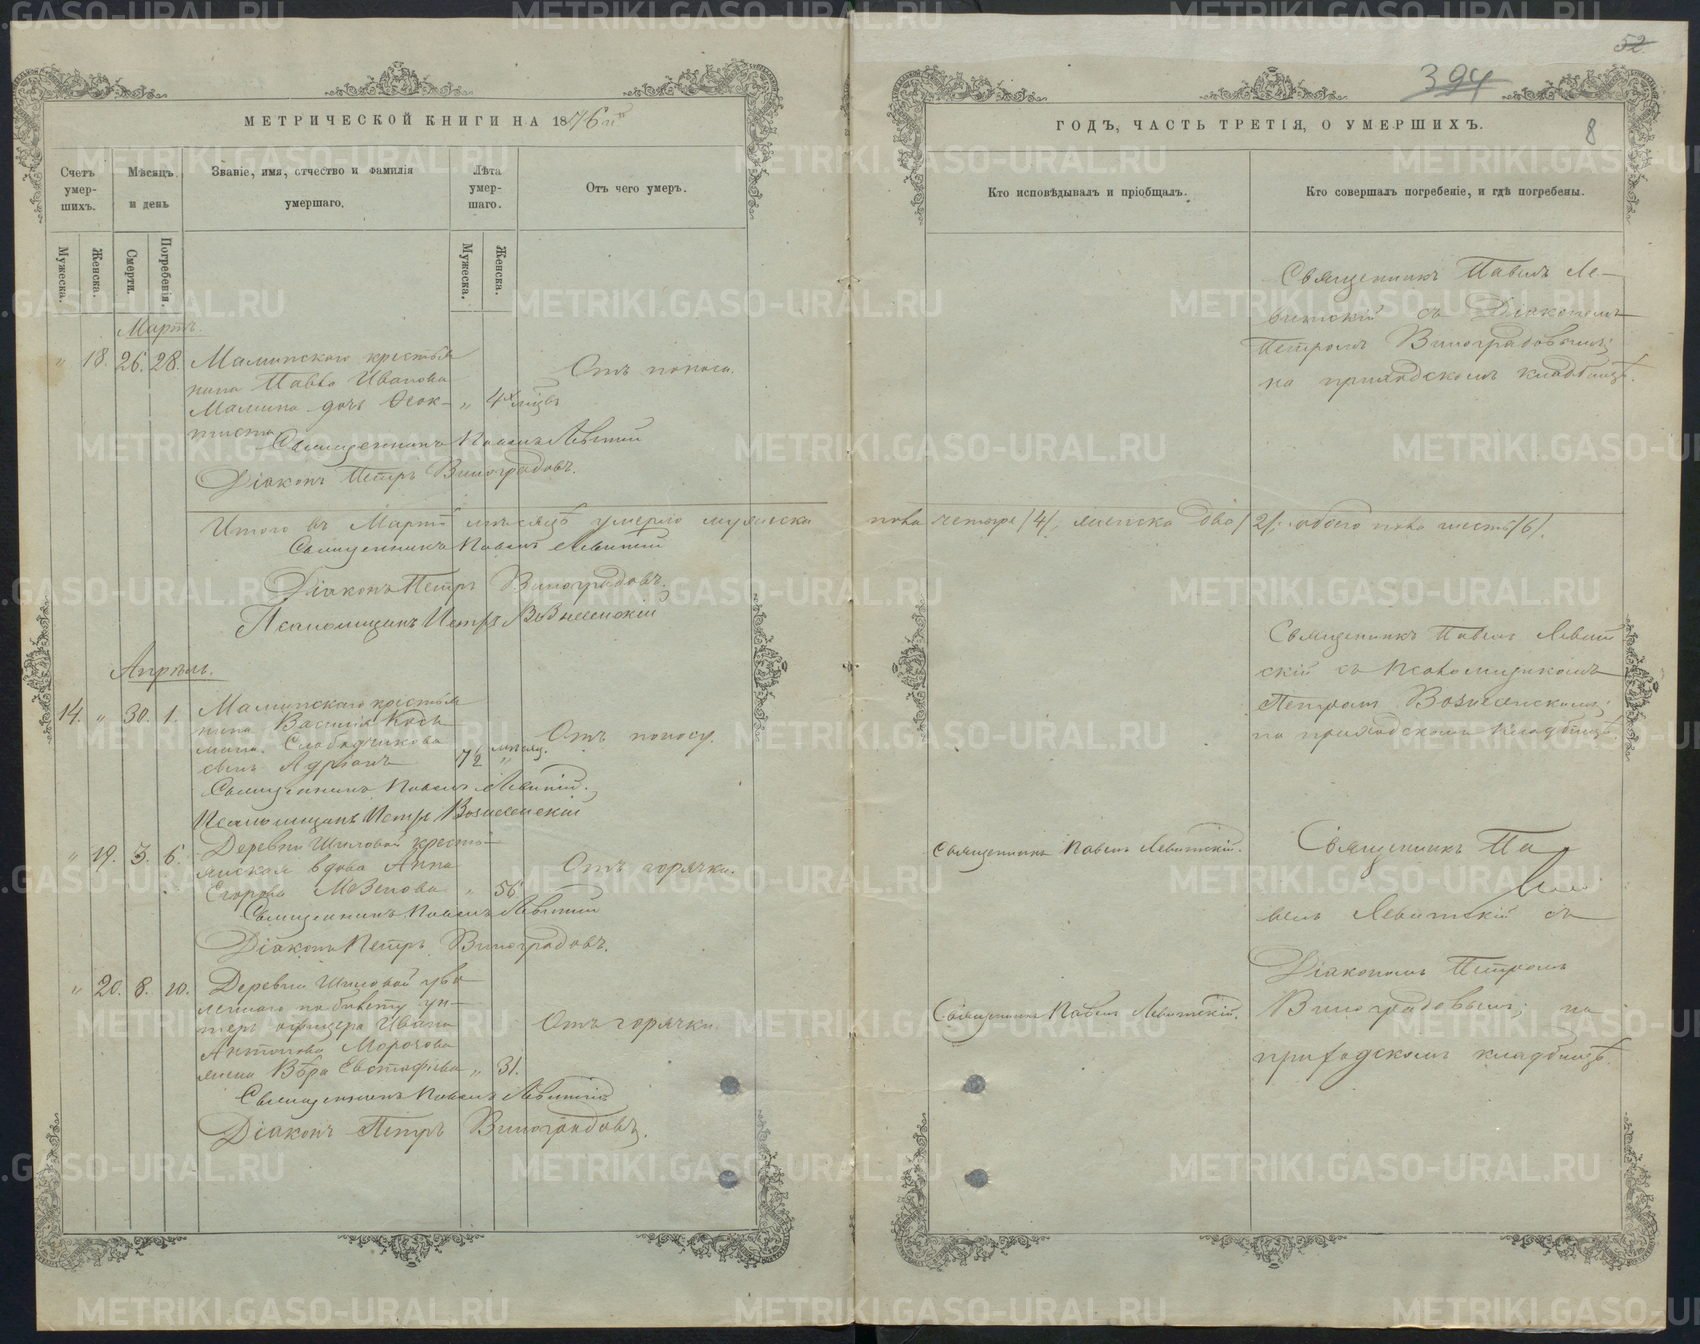 МЕТРИЧЕСКОЙ КНИГИ НА 1876й
Счетъ умер-шихъ.
Мѣсяцъ и день
Званіе, имя, отчество и фамилія умершаго.
Лѣта умер-шаго.
Отъ чего умеръ.
Мужеска.
Женска.
Смерти.
Погребенія.
Мужеска.
Женска.
Мартъ.
" 18. 26. 28. Маминскаго крестья
нина Павла Иванова
Мамина дочь Ѳеок- " 4х мѣсяцъ
тиста
Отъ поноса.
Священникъ Павелъ Левитскій
Діаконъ Петръ Виноградовъ.
Итого въ Мартѣ мѣсяцѣ умерло мужеска
Священникъ Павелъ Левитскій
Діаконъ Петръ Виноградовъ.
Псаломщикъ Петръ Вознесенскій
Апрѣль.
14. " 30. 1. Маминскаго крестья
нина Василія Козь
мина Слободчикова
сынъ Адріанъ
Отъ поносу.
Священникъ Павелъ Левитскій.
Псаломщикъ Петръ Вознесенскій
" 19. 3. 6. Деревни Шиловой кресть-
янская вдова Анна
Егорова Мозгова " 56
Отъ горячки.
Священникъ Павелъ Левитскій
Діаконъ Петръ Виноградовъ.
" 20. 8. 10. Деревни Шиловой уво
леннаго по билету ун-
теръ офицера Ивана
Антонова Морозова
жена Вѣра Евстафіева " 31.
Отъ горячки.
Священникъ Павелъ Левитскій
Діаконъ Петръ Виноградовъ.
52
394
ГОДЪ, ЧАСТЬ ТРЕТІЯ, О УМЕРШИХЪ.
8
Кто исповѣдывалъ и пріобщалъ.
Кто совершалъ погребеніе, и гдѣ погребены.
Священникъ Павелъ Ле-
витскій съ Діакономъ
Петромъ Виноградовымъ;
на приходскомъ кладбищѣ.
пола четыре /4/, женска два /2/: обоего пола шесть /6/.
Священникъ Павелъ Левит
скій съ Псаломщикомъ
Петромъ Вознесенскимъ;
на приходскомъ кладбищѣ.
Священникъ Павелъ Левитскій.
Священникъ Па
велъ Левитскій съ
Діакономъ Петромъ
Священникъ Павелъ Левитскій.
Виноградовымъ; на
приходскомъ кладбищѣ.
METRIKI.GASO-URAL.RU